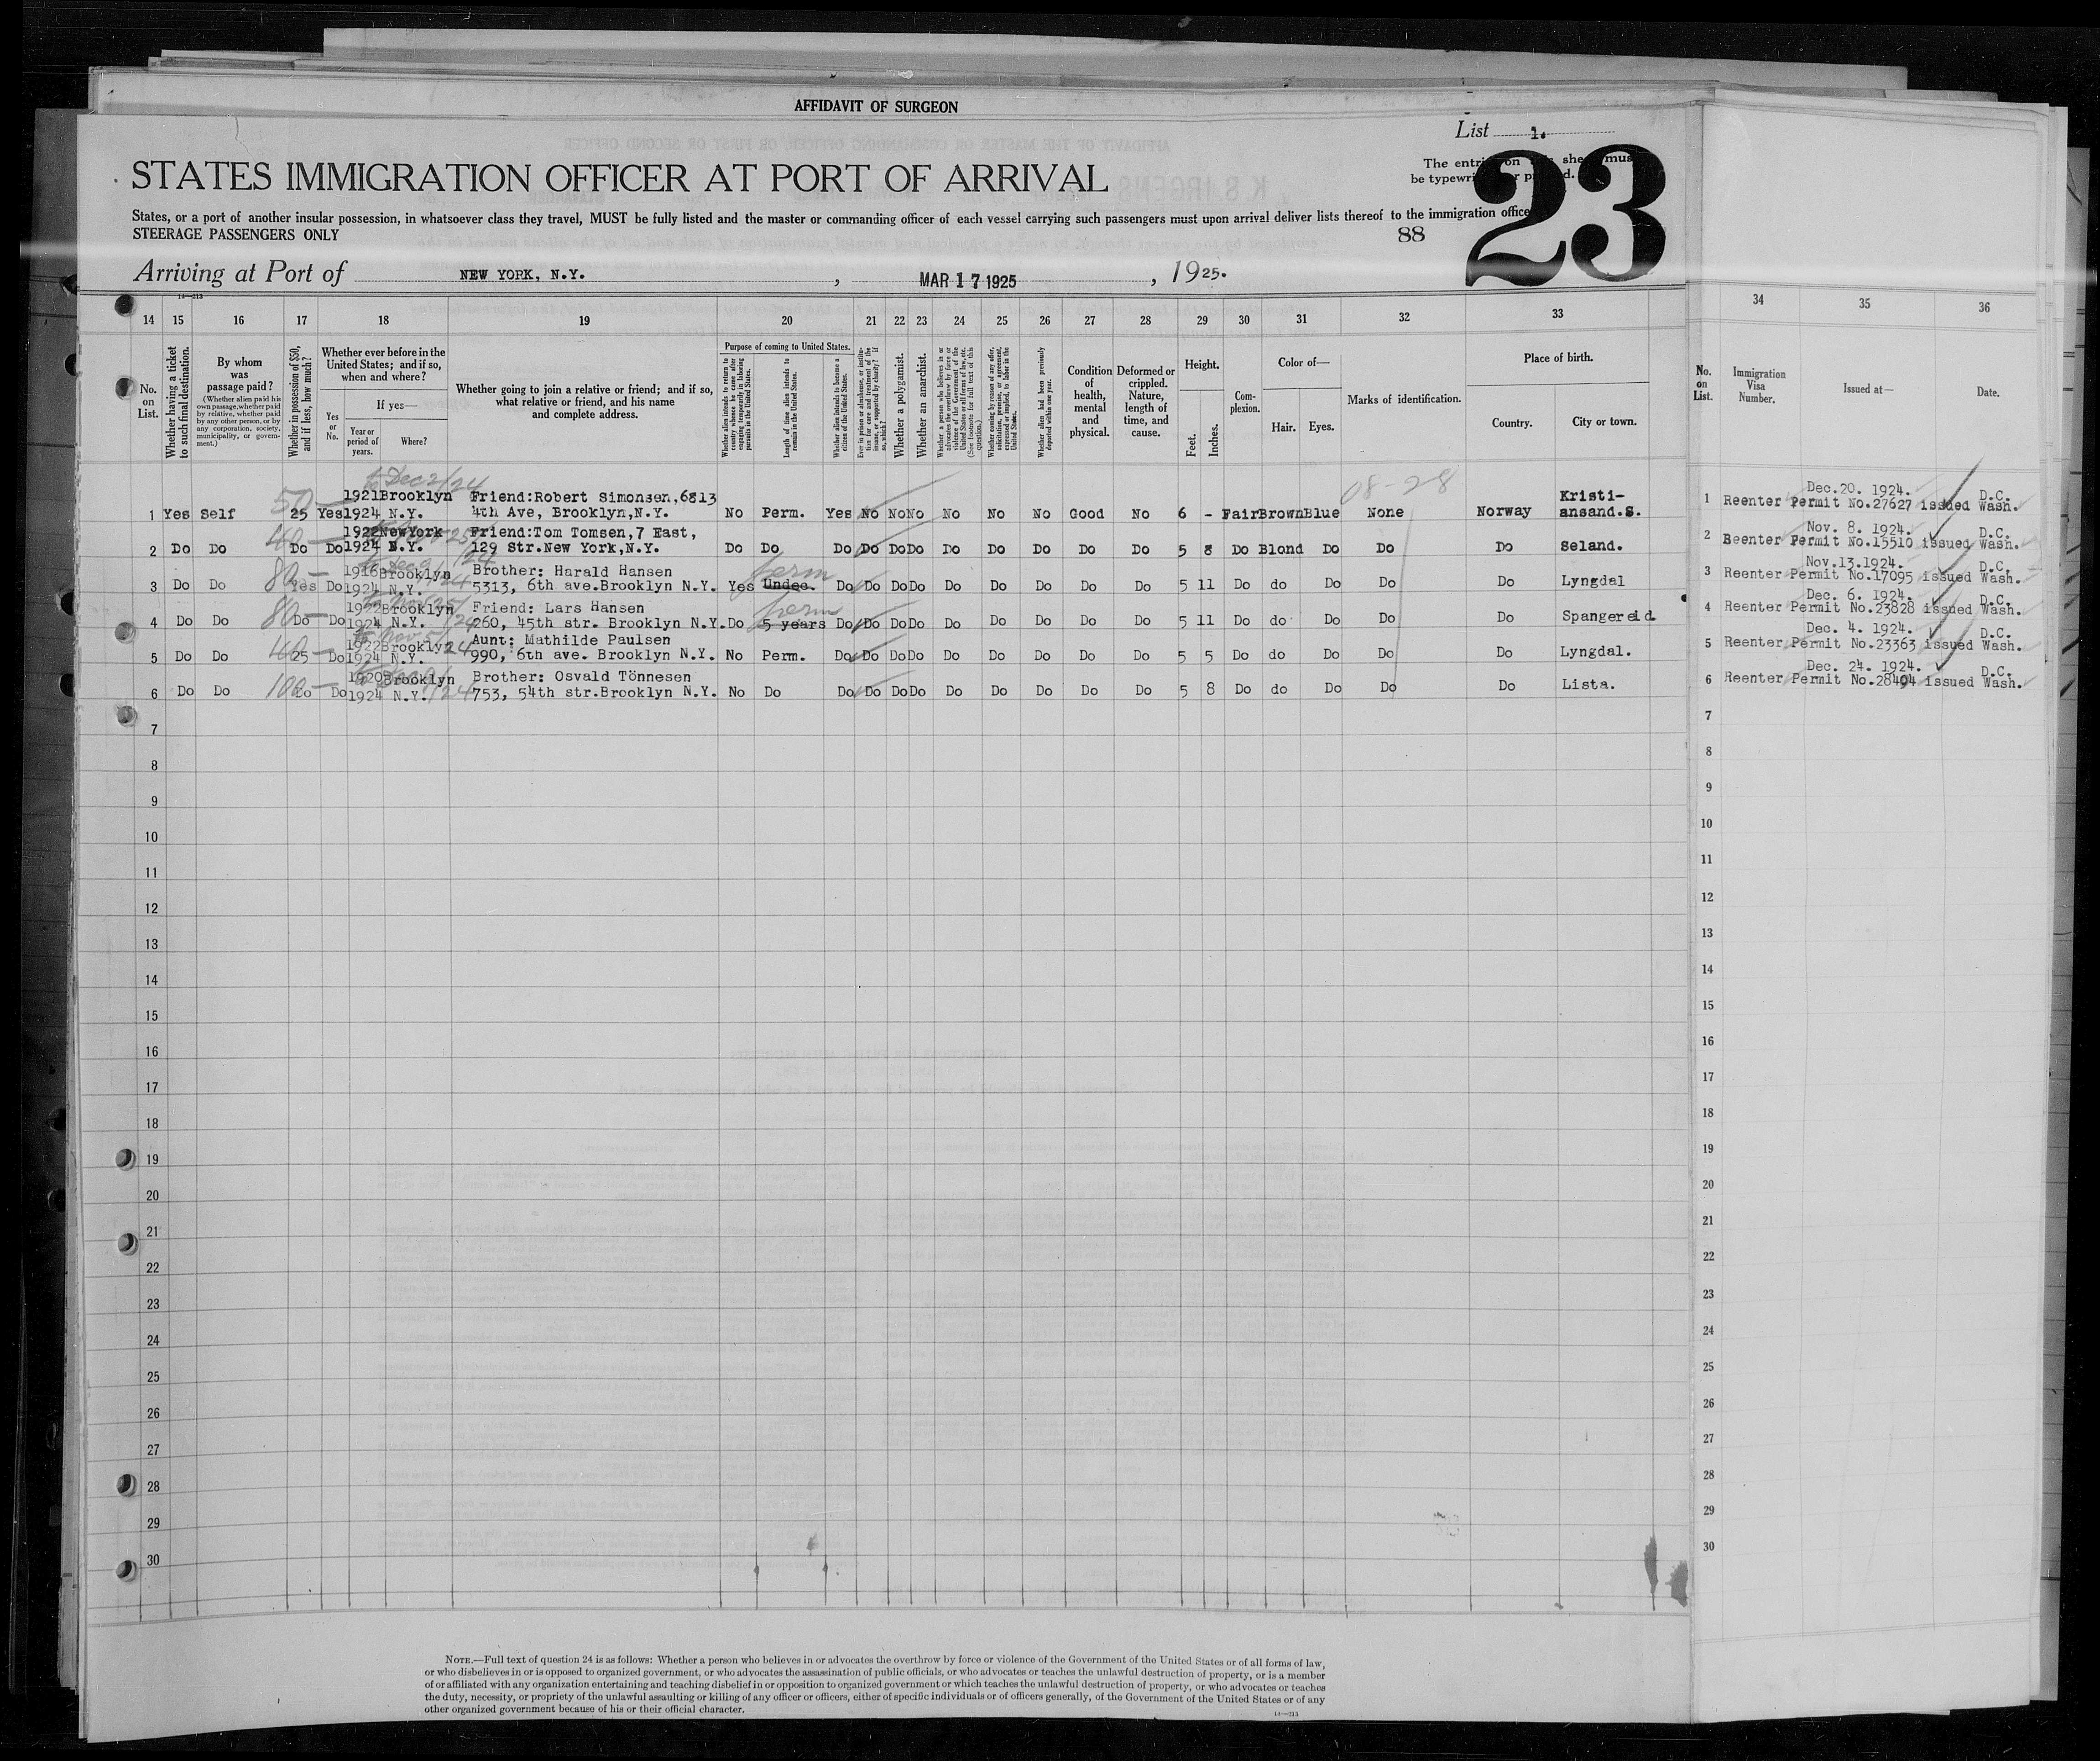 AFFIDAVIT OF SURGEON
List 1.
STATES IMMIGRATION OFFICER AT PORT OF ARRIVAL
The entries on this sheet must
be typewritten or printed.
23
States, or a port of another insular possession, in whatsoever class they travel, MUST be fully listed and the master or commanding officer of each vessel carrying such passengers must upon arrival deliver lists thereof to the immigration office
STEERAGE PASSENGERS ONLY
88
Arriving at Port of NEW YORK, N.Y. , MAR 17 1925 , 1925.
14—213
14 15 16 17 18 19 20 21 22 23 24 25 26 27 28 29 30 31 32 33 34 35 36
No. on List.
Whether having a ticket to such final destination.
By whom was passage paid?
(Whether alien paid his own passage, whether paid by relative, whether paid by any other person, or by any corporation, society, municipality, or government.)
Whether in possession of $50, and if less, how much?
Whether ever before in the United States; and if so, when and where?
Yes or No.
If yes—
Year or period of years.
Where?
Whether going to join a relative or friend; and if so, what relative or friend, and his name and complete address.
Purpose of coming to United States.
Whether alien intends to return to country whence he came after engaging temporarily in laboring pursuits in the United States.
Length of time alien intends to remain in the United States.
Whether alien intends to become a citizen of the United States.
Ever in prison or almshouse, or institution for care and treatment of the insane, or supported by charity? If so, which?
Whether a polygamist.
Whether an anarchist.
Whether a person who believes in or advocates the overthrow by force or violence of the Government of the United States or all forms of law, etc. (See footnote for full text of this question.)
Whether coming by reason of any offer, solicitation, promise, or agreement, expressed or implied, to labor in the United States.
Whether alien had been previously deported within one year.
Condition of health, mental and physical.
Deformed or crippled. Nature, length of time, and cause.
Height.
Feet. Inches.
Complexion.
Color of—
Hair. Eyes.
Marks of identification.
Place of birth.
Country. City or town.
No. on List.
Immigration Visa Number.
Issued at—
Date.
08-28
to Dec 2/24
50 —
1921 Brooklyn Friend:Robert Simonsen,6813 Kristi- Dec.20. 1924. D.C.
1 Yes Self 25 Yes 1924 N.Y. 4th Ave, Brooklyn,N.Y. No Perm. Yes No No No No No No Good No 6 - Fair Brown Blue None Norway ansand.S. 1 Reenter Permit No.27627 issued Wash.
40 —
1922 NewYork Friend:Tom Tomsen,7 East, Nov. 8. 1924. D.C.
2 Do Do Do Do 1924 N.Y. 129 Str.New York,N.Y. Do Do Do Do Do Do Do Do Do Do Do 5 8 Do Blond Do Do Do Seland. 2 Reenter Permit No.15510 issued Wash.
80 —
1916 Brooklyn Brother: Harald Hansen perm Nov.13.1924. D.C.
3 Do Do Yes Do 1924 N.Y. 5313, 6th ave.Brooklyn N.Y. Yes Undec. Do Do Do Do Do Do Do Do Do 5 11 Do do Do Do Do Lyngdal 3 Reenter Permit No.17095 issued Wash.
80 —
1922 Brooklyn Friend: Lars Hansen perm Dec. 6. 1924. D.C.
4 Do Do Do Do 1924 N.Y. 260, 45th str. Brooklyn N.Y. Do 5 years Do Do Do Do Do Do Do Do Do 5 11 Do do Do Do Do Spangereid. 4 Reenter Permit No.23828 issued Wash.
1922 Brooklyn Aunt: Mathilde Paulsen Dec. 4. 1924. D.C.
5 Do Do 25 Do 1924 N.Y. 990, 6th ave. Brooklyn N.Y. No Perm. Do Do Do Do Do Do Do Do Do 5 5 Do do Do Do Do Lyngdal. 5 Reenter Permit No.23363 issued Wash.
100 —
1920 Brooklyn Brother: Osvald Tönnesen Dec. 24. 1924. D.C.
6 Do Do Do Do 1924 N.Y. 753, 54th str.Brooklyn N.Y. No Do Do Do Do Do Do Do Do Do Do 5 8 Do do Do Do Do Lista. 6 Reenter Permit No.28494 issued Wash.
7 7
8 8
9 9
10 10
11 11
12 12
13 13
14 14
15 15
16 16
17 17
18 18
19 19
20 20
21 21
22 22
23 23
24 24
25 25
26 26
27 27
28 28
29 29
30 30
NOTE.—Full text of question 24 is as follows: Whether a person who believes in or advocates the overthrow by force or violence of the Government of the United States or of all forms of law,
or who disbelieves in or is opposed to organized government, or who advocates the assassination of public officials, or who advocates or teaches the unlawful destruction of property, or is a member
of or affiliated with any organization entertaining and teaching disbelief in or opposition to organized government or which teaches the unlawful destruction of property, or who advocates or teaches
the duty, necessity, or propriety of the unlawful assaulting or killing of any officer or officers, either of specific individuals or of officers generally, of the Government of the United States or of any
other organized government because of his or their official character.
14—213